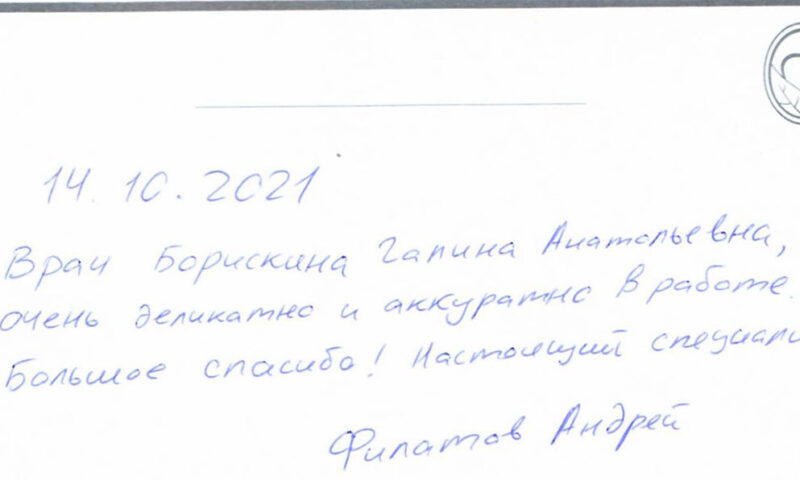 14.10.2021
Врач Борискина Галина Анатольевна,
очень деликатно и аккуратно в работе.
Большое спасибо! Настоящий специали
Филатов Андрей